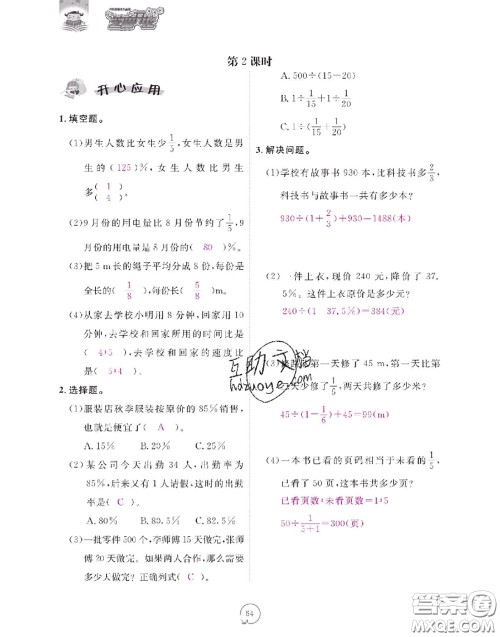 第2课时
开心应用
1.填空题。
(1)男生人数比女生少1/5,女生人数是男
生的(125)%,女生人数比男生
多(1/4)。
(2)9月份的用电量比8月份节约了1/5,9
月份的用电量是8月份的(80)%。
(3)把5m长的绳子平均分成8份,每份是
全长的(1/8),每份长(5/8)m。
(4)从家去学校小明用8分钟,回家用10
分钟,去学校和回家所用的时间比是
(4∶5),去学校和回家的速度比
是(5∶4)。
2.选择题。
(1)服装店秋季服装按原价的85%销售,
也就是便宜了(A)。
A.15% B.20% C.25%
(2)某公司今天出勤34人,出勤率为
85%,后来又有1人请假,这时的出勤
率是(C)。
A.80% B.90% C.82.5%
(3)一批零件500个,李师傅15天做完,张师
傅20天做完。如果两人合作,那么需要
多少天做完?正确列式(C)。
A.500÷(15-20)
B.1÷1/15+1÷1/20
C.1÷(1/15+1/20)
3.解决问题。
(1)学校有故事书930本,比科技书多2/3,
科技书与故事书一共有多少本?
930÷(1+2/3)+930=1488(本)
(2)一件上衣,现价240元,降价了37.
5%。这件上衣原价是多少元?
240÷(1 37.5%)=384(元)
第一天修了45m,第一天比
第二天少修了1/6,两天共修了多少米?
45÷(1-1/6)+45=99(m)
(4)一本书已看的页码相当于未看的1/5,
已看了50页,这本书共多少页?
已看页数∶未看页数=1∶5
50÷1/(5+1)=300(页)
互助文档
huzuoye.com
54
答案圈
MXQE.COM